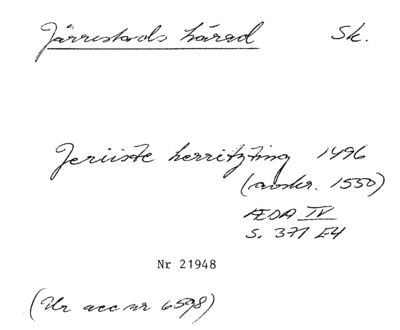 Järrestads härad Sk.
Jeriiste herritzting 1496
(avskr. 1550)
ÆDA IV
s. 371 E4
Nr 21948
(Ur acc nr 6598)